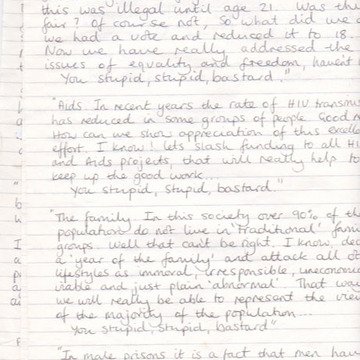 this was illegal until age 21. Was this
fair? Of course not, so what did we
we had a vote and reduced it to 18.
Now we have really addressed the
issues of equality and freedom, haven't
You stupid, stupid, bastard."
"Aids. In recent years the rate of HIV transmi
has reduced in some groups of people. Good
How can we show appreciation of this excelle
effort. I know! lets slash funding to all HI
and Aids projects, that will really help to
keep up the good work...
You stupid, stupid, bastard."
"The family. In this society over 90% of th
population do not live in 'traditional' fami
groups. Well that can't be right. I know, dec
a 'year of the family' and attack all ot
lifestyles as immoral, irresponsible, uneconom
viable and just plain 'abnormal'. That way
we will really be able to represent the view
of the majority of the population...
You stupid, stupid, bastard"
"In male prisons it is a fact that men have